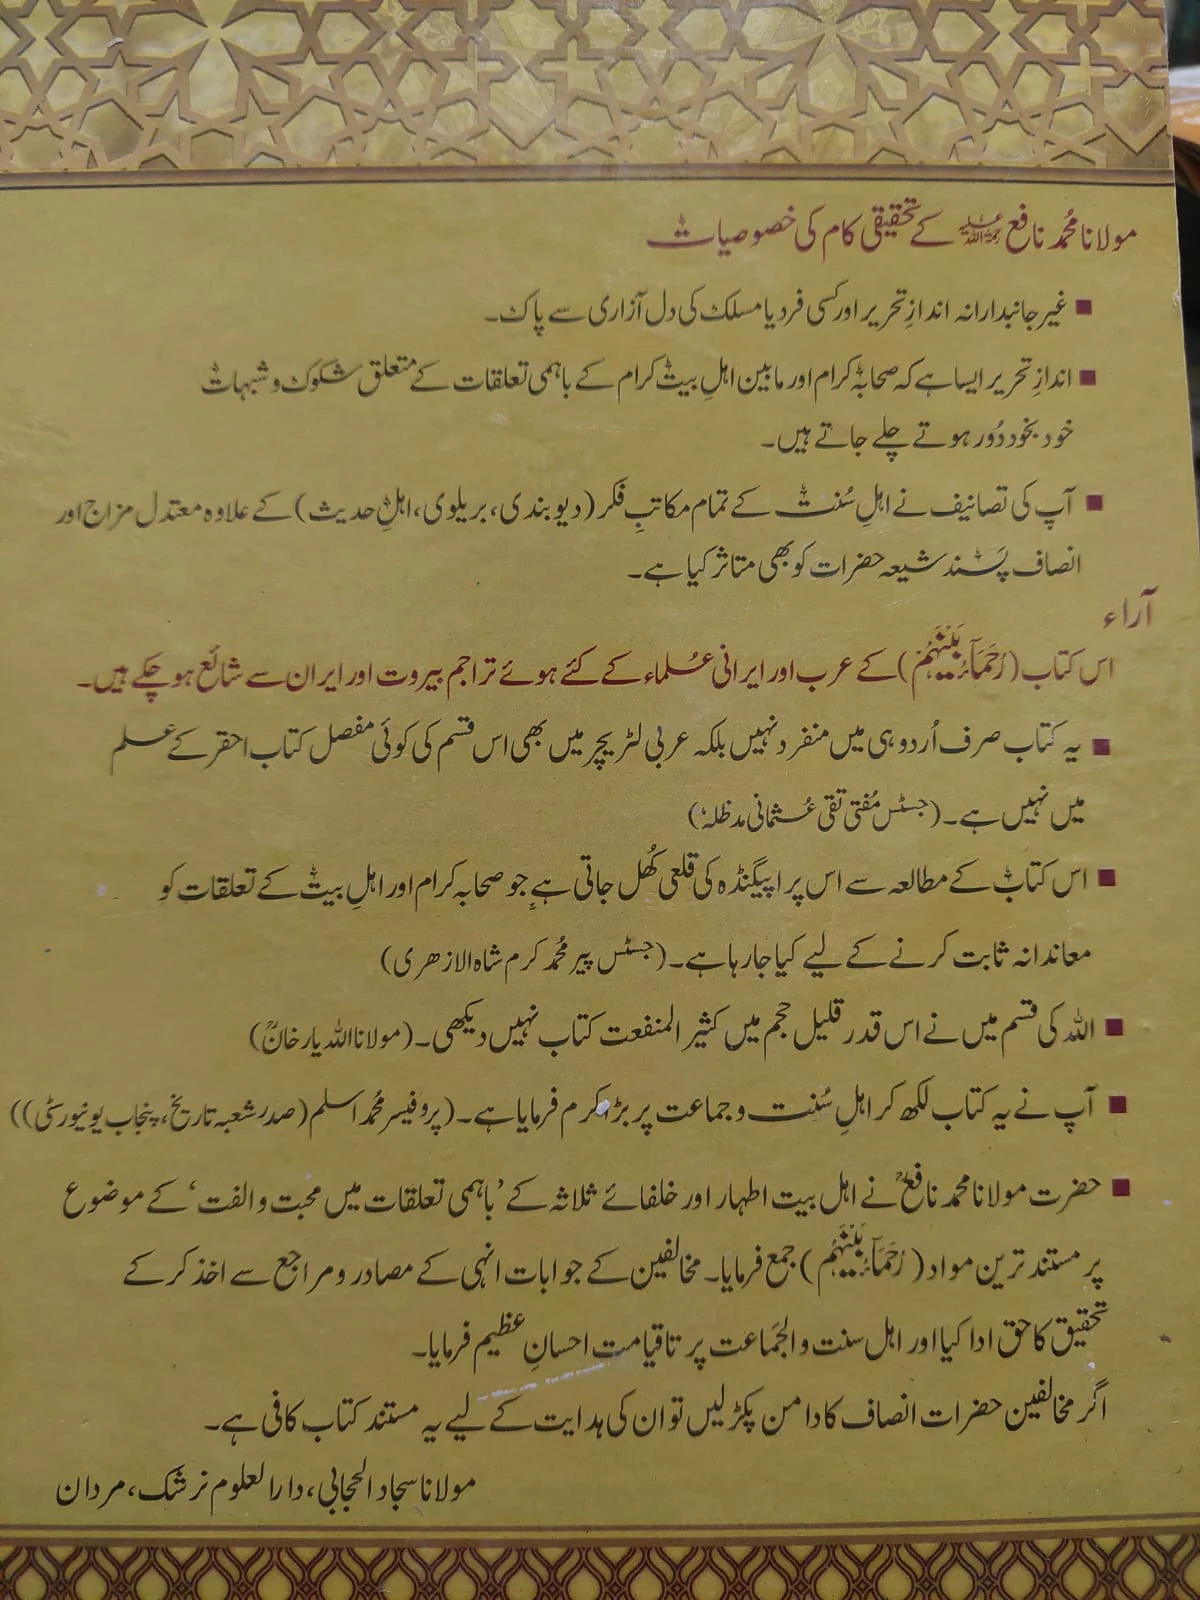 مولانا محمد نافع رحمۃ اللہ علیہ کے تحقیقی کام کی خصوصیات
■ غیر جانبدارانہ اندازِ تحریر اور کسی فرد یا مسلک کی دل آزاری سے پاک۔
■ اندازِ تحریر ایسا ہے کہ صحابہؓ کرام اور مابین اہلِ بیتؓ کرام کے باہمی تعلقات کے متعلق شکوک و شبہات
خود بخود دُور ہوتے چلے جاتے ہیں۔
■ آپ کی تصانیف نے اہلِ سُنت کے تمام مکاتبِ فکر (دیوبندی، بریلوی، اہلِ حدیث) کے علاوہ معتدل مزاج اور
انصاف پَسند شیعہ حضرات کو بھی متاثر کیا ہے۔
آراء
اس کتاب (رُحَمَآءُ بَیْنَہُمْ) کے عرب اور ایرانی عُلماء کے کئے ہوئے تراجم بیروت اور ایران سے شائع ہو چکے ہیں۔
■ یہ کتاب صرف اُردو ہی میں منفرد نہیں بلکہ عربی لٹریچر میں بھی اس قسم کی کوئی مفصل کتاب احقر کے علم
میں نہیں ہے۔ (جسٹس مُفتی تقی عُثمانی مدظلہٗ)
■ اس کتاب کے مطالعہ سے اس پراپیگنڈہ کی قلعی کُھل جاتی ہے جو صحابہ کرام اور اہلِ بیتؓ کے تعلقات کو
معاندانہ ثابت کرنے کے لیے کیا جا رہا ہے۔ (جسٹس پیر محمد کرم شاہ الازھری)
■ اللہ کی قسم میں نے اس قدر قلیل حجم میں کثیر المنفعت کتاب نہیں دیکھی۔ (مولانا اللہ یار خانؒ)
■ آپ نے یہ کتاب لکھ کر اہلِ سُنت و جماعت پر بڑا کرم فرمایا ہے۔ (پروفیسر محمد اسلم (صدر شعبہ تاریخ، پنجاب یونیورسٹی))
■ حضرت مولانا محمد نافعؒ نے اہل بیت اطہار اور خلفائے ثلاثہ کے ’باہمی تعلقات میں محبت و الفت‘ کے موضوع
پر مستند ترین مواد (رُحَمَآءُ بَیْنَہُمْ) جمع فرمایا۔ مخالفین کے جوابات انہی کے مصادر و مراجع سے اخذ کر کے
تحقیق کا حق ادا کیا اور اہل سنت والجماعت پر تا قیامت احسانِ عظیم فرمایا۔
اگر مخالفین حضرات انصاف کا دامن پکڑ لیں تو ان کی ہدایت کے لیے یہ مستند کتاب کافی ہے۔
مولانا سجاد الحجابی، دارالعلوم نرشک، مردان